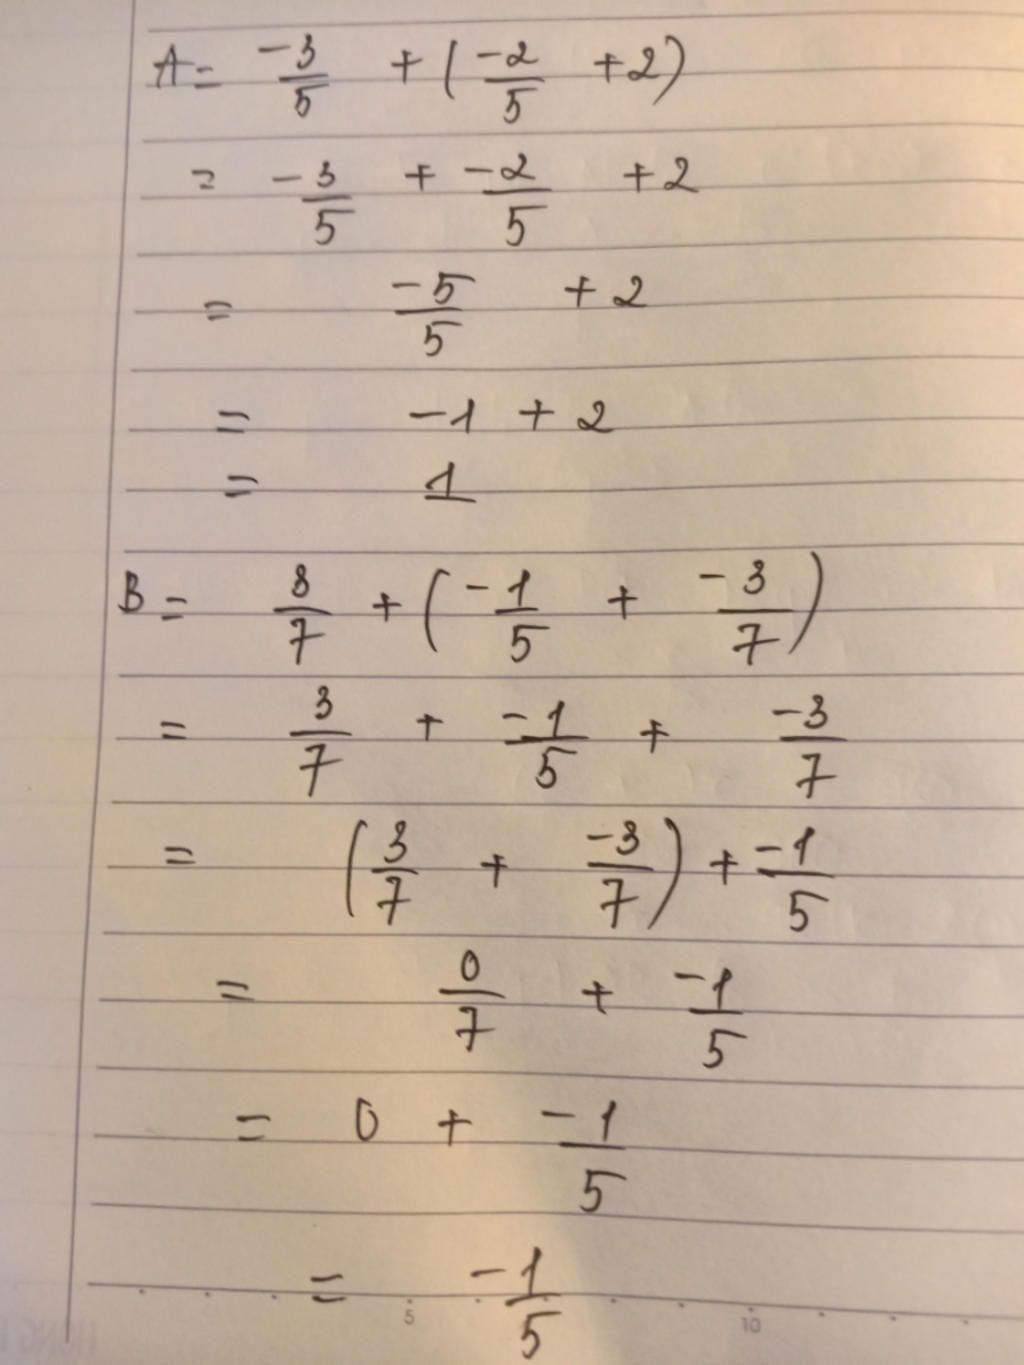 A = -3/5 + (-2/5 + 2)
= -3/5 + -2/5 + 2
= -5/5 + 2
= -1 + 2
= 1
B = 3/7 + (-1/5 + -3/7)
= 3/7 + -1/5 + -3/7
= (3/7 + -3/7) + -1/5
= 0/7 + -1/5
= 0 + -1/5
= -1/5
5 10